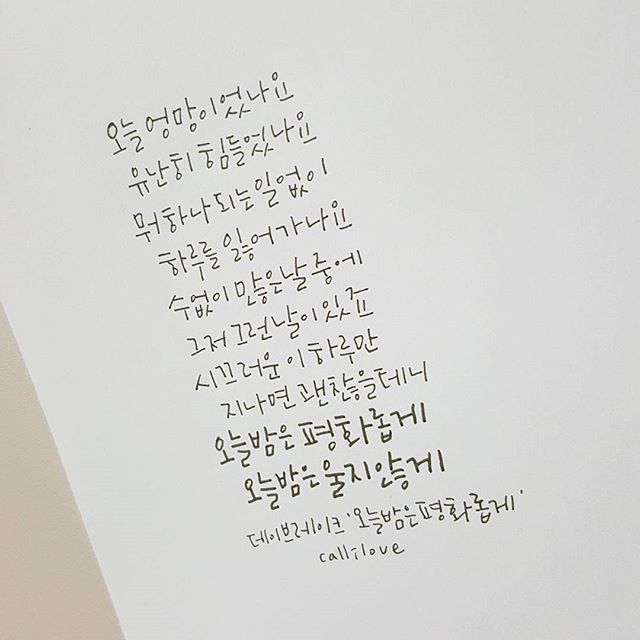 오늘 엉망이었나요
유난히 힘들었나요
뭐 하나 되는 일 없이
하루를 잃어가나요
수없이 많은 날 중에
그저 그런 날이 있죠
시끄러운 이 하루만
지나면 괜찮을테니
오늘밤은 평화롭게
오늘밤은 울지 않게
데이브레이크 '오늘밤은 평화롭게'
callilove